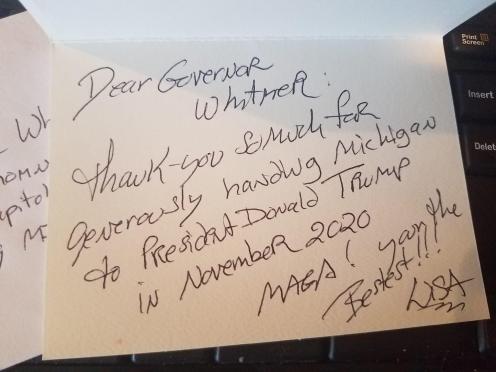 Dear Governor
Whitmer:
thank-you so much for
generously handing Michigan
to President Donald Trump
in November 2020
MAGA! your the
Bestest!!!
LISA
Wh
Print
Screen
Insert
Delet